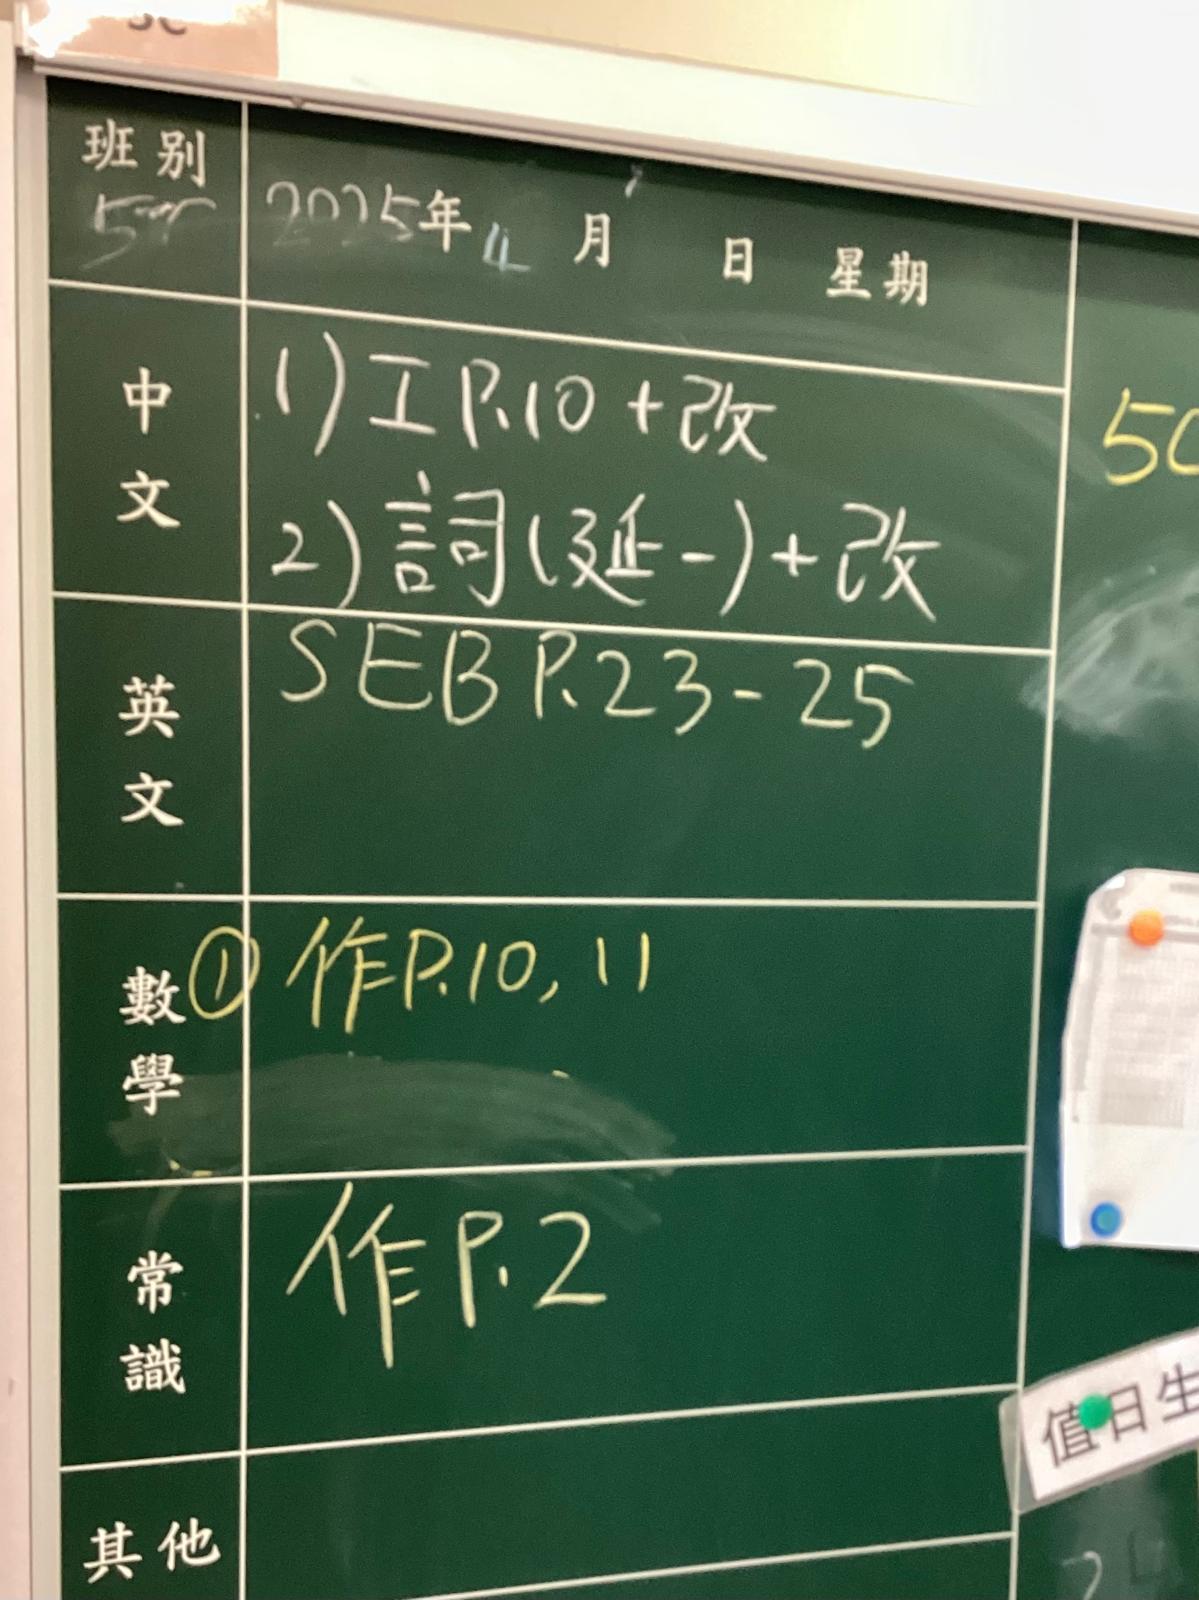 班別
2025年4月 日 星期
中文
1) 工 P.10 + 改
2) 詞(延一) + 改
英文
SEB P.23-25
數學
① 作P.10, 11
常識
作 P.2
其他
值日生